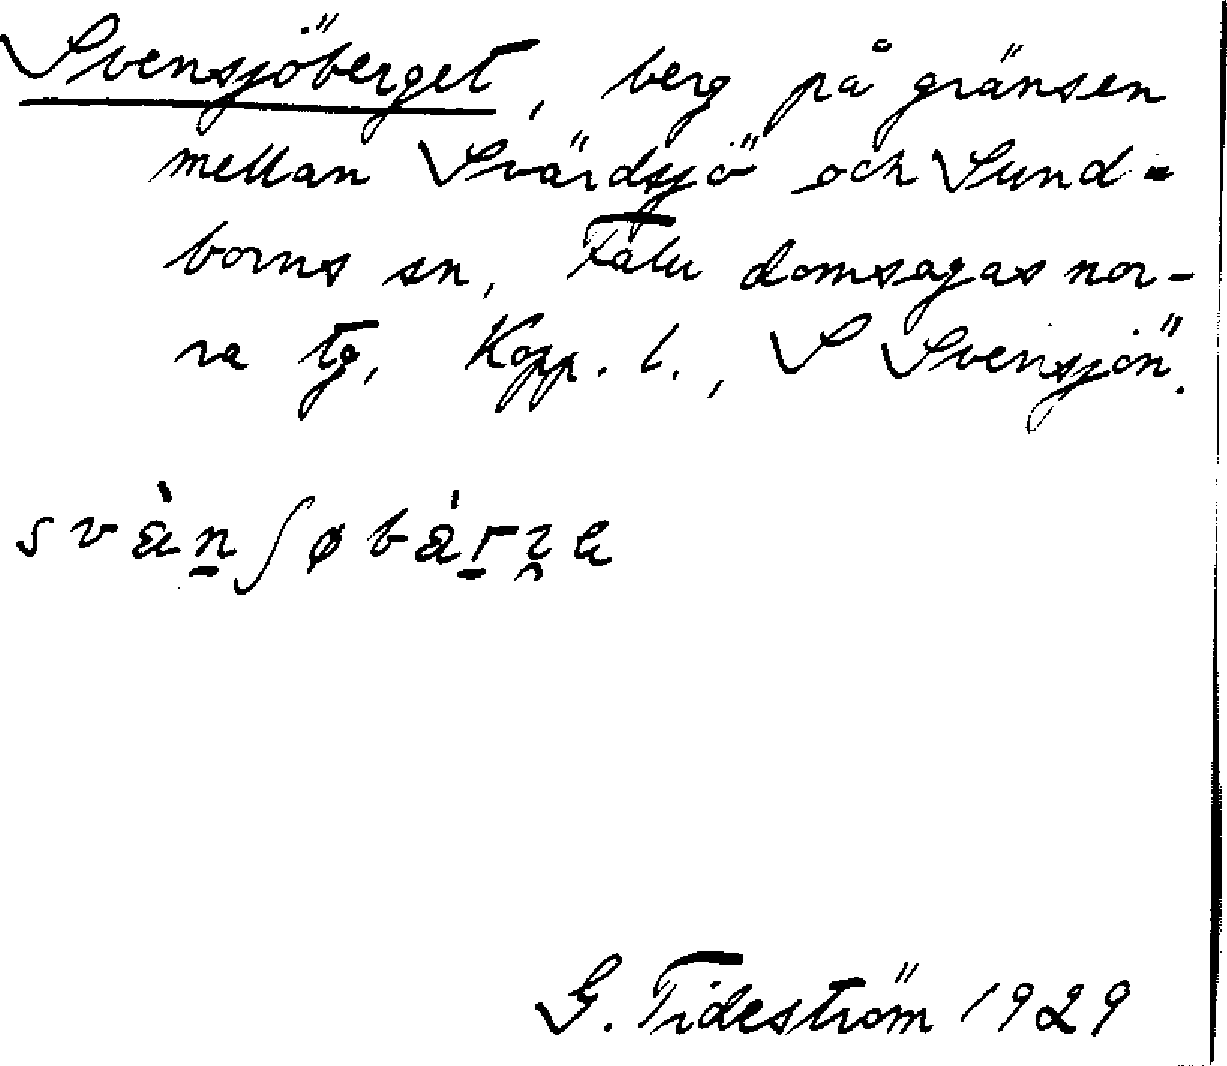 Svensjöberget, berg på gränsen
mellan Svärdsjö och Sund-
borns sn, Falu domsagas nor-
ra tg, Kopp. l., S Svensjön.
G. Tideström 1929